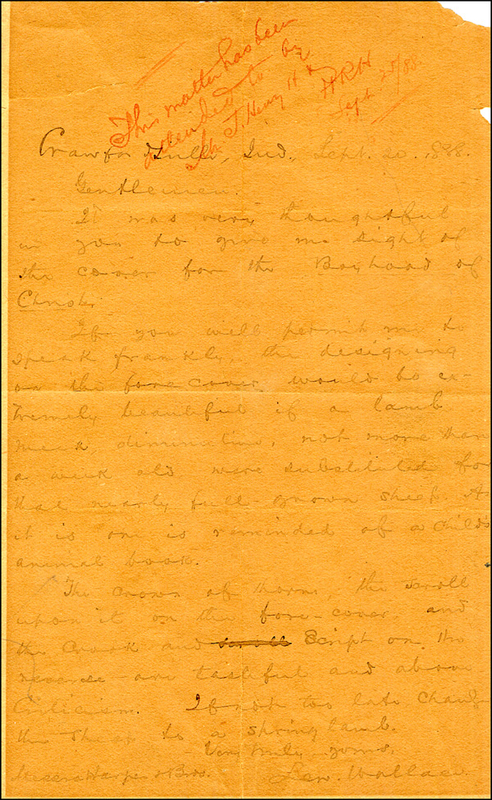 This matter has been
attended to by
Mr. J. Henry H
HRH
Sept 25/88
Crawfordsville, Ind., Sept. 20. 1888.
Gentlemen.
It was very thoughtful
in you to give me sight of
the cover for the Boyhood of
Christ.
If you will permit me to
speak frankly, the designing
on the fore cover, would be ex-
tremely beautiful if a lamb
meek, diminutive, not more than
a week old were substituted for
that nearly full-grown sheep. As
it is one is reminded of a child's
animal book.
The crown of thorns the scroll
upon it on the fore-cover and
the and scroll Script on the
reverse - are tasteful and above
criticism. If not too late change
the sheep to a spring lamb.
Very truly yours,
Messrs Harper & Bros. Lew. Wallace.